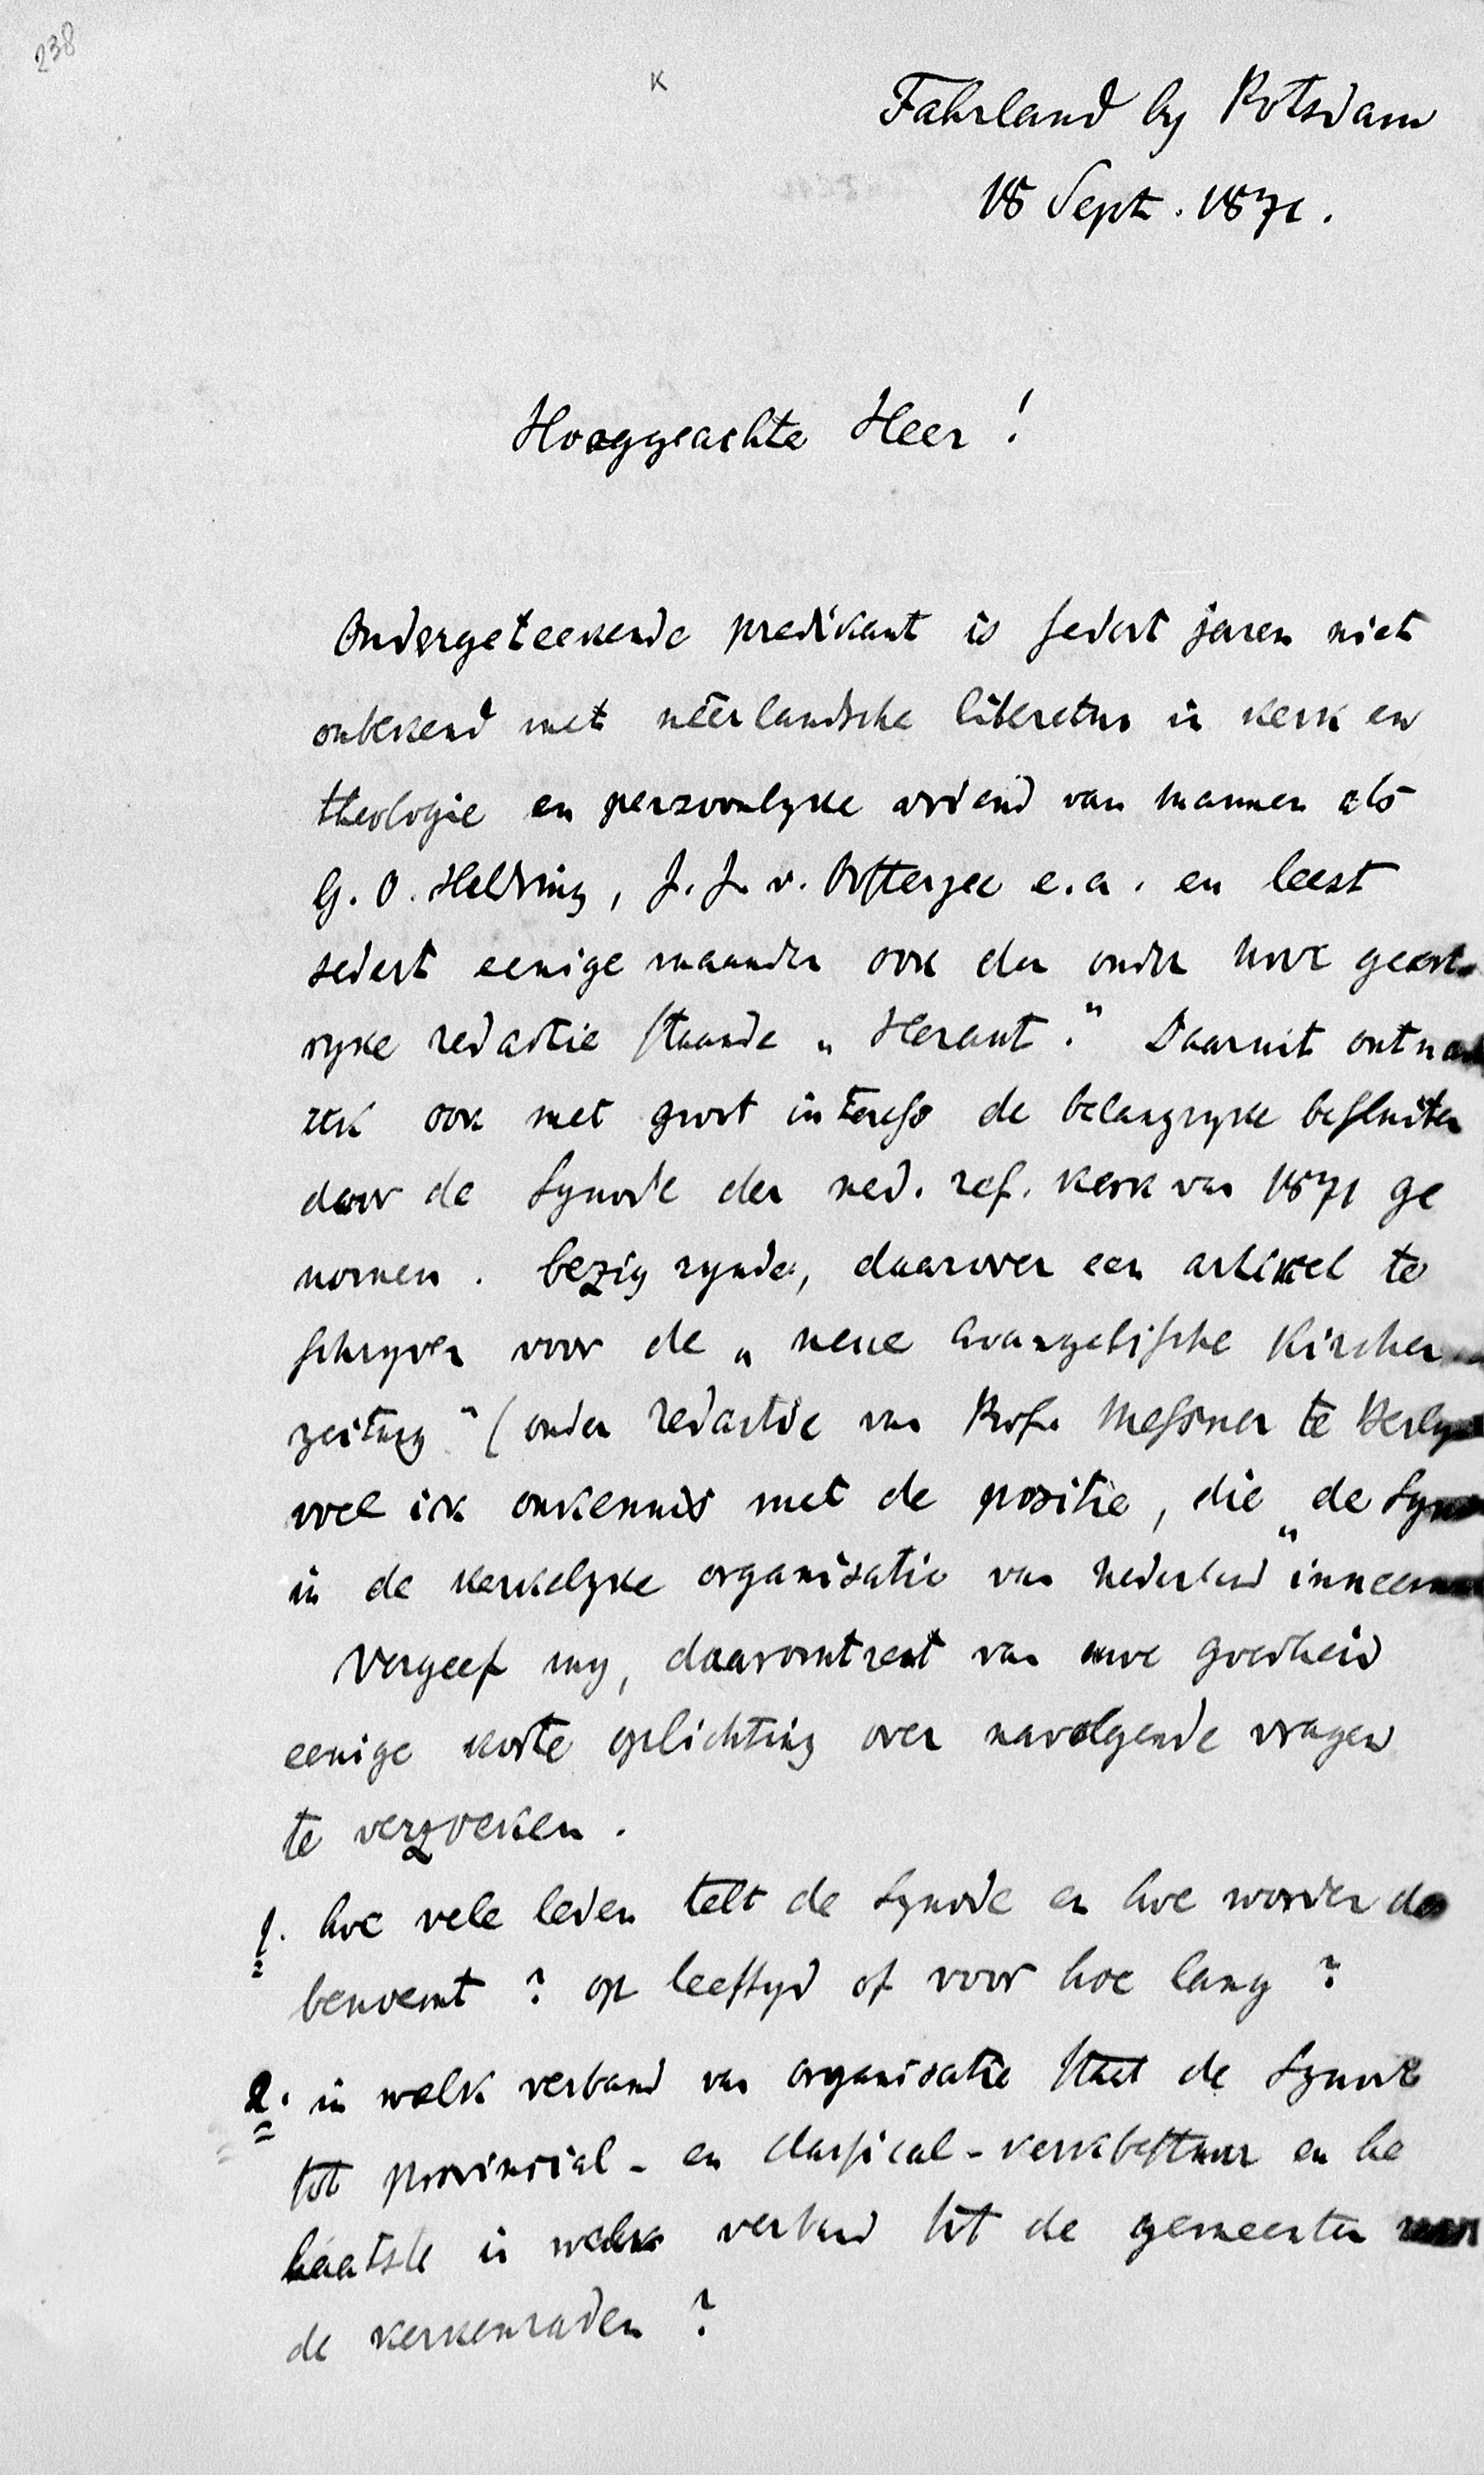 238
K
Fahrland by Potsdam
18 Sept. 1871.
Hooggeachte Heer !
Ondergeteekende predikant is sedert jaren niet
onbekend met nêerlandsche literatur in kerk en
theologie en persoonlyke vriend van mannen als
G. O. Heldring, J. J. v. Oosterzee e.a. en leest
sedert eenige maanden ook den onder Uwe geest-
ryke redactie staande „ Heraut." Daaruit
ook met groot interesse de belangryke besluiten
door de Synode der ned. ref. kerk van 1871 ge
nomen. bezig zynde, daarover een artikel te
schryven voor de „ neue evangelische Kirchen
zeitung" (onder redactie van Prof. Messner te
voel ik onkennis met de positie, die „de
in de kerkelyke organisatie van Nederland"
Vergeef my, daaromtrent van uwe goedheid
eenige korte oplichting over navolgende vragen
te verzoeken.
1. hoe vele leden telt de Synode en hoe worden
benoemt ? op leeftyd of voor hoe lang ?
2. in welk verband van organisatie staat de Synode
tot provincial- en classical-kerkbestuur en
laatste in welk verband tot de gemeenten
de kerkenraden ?